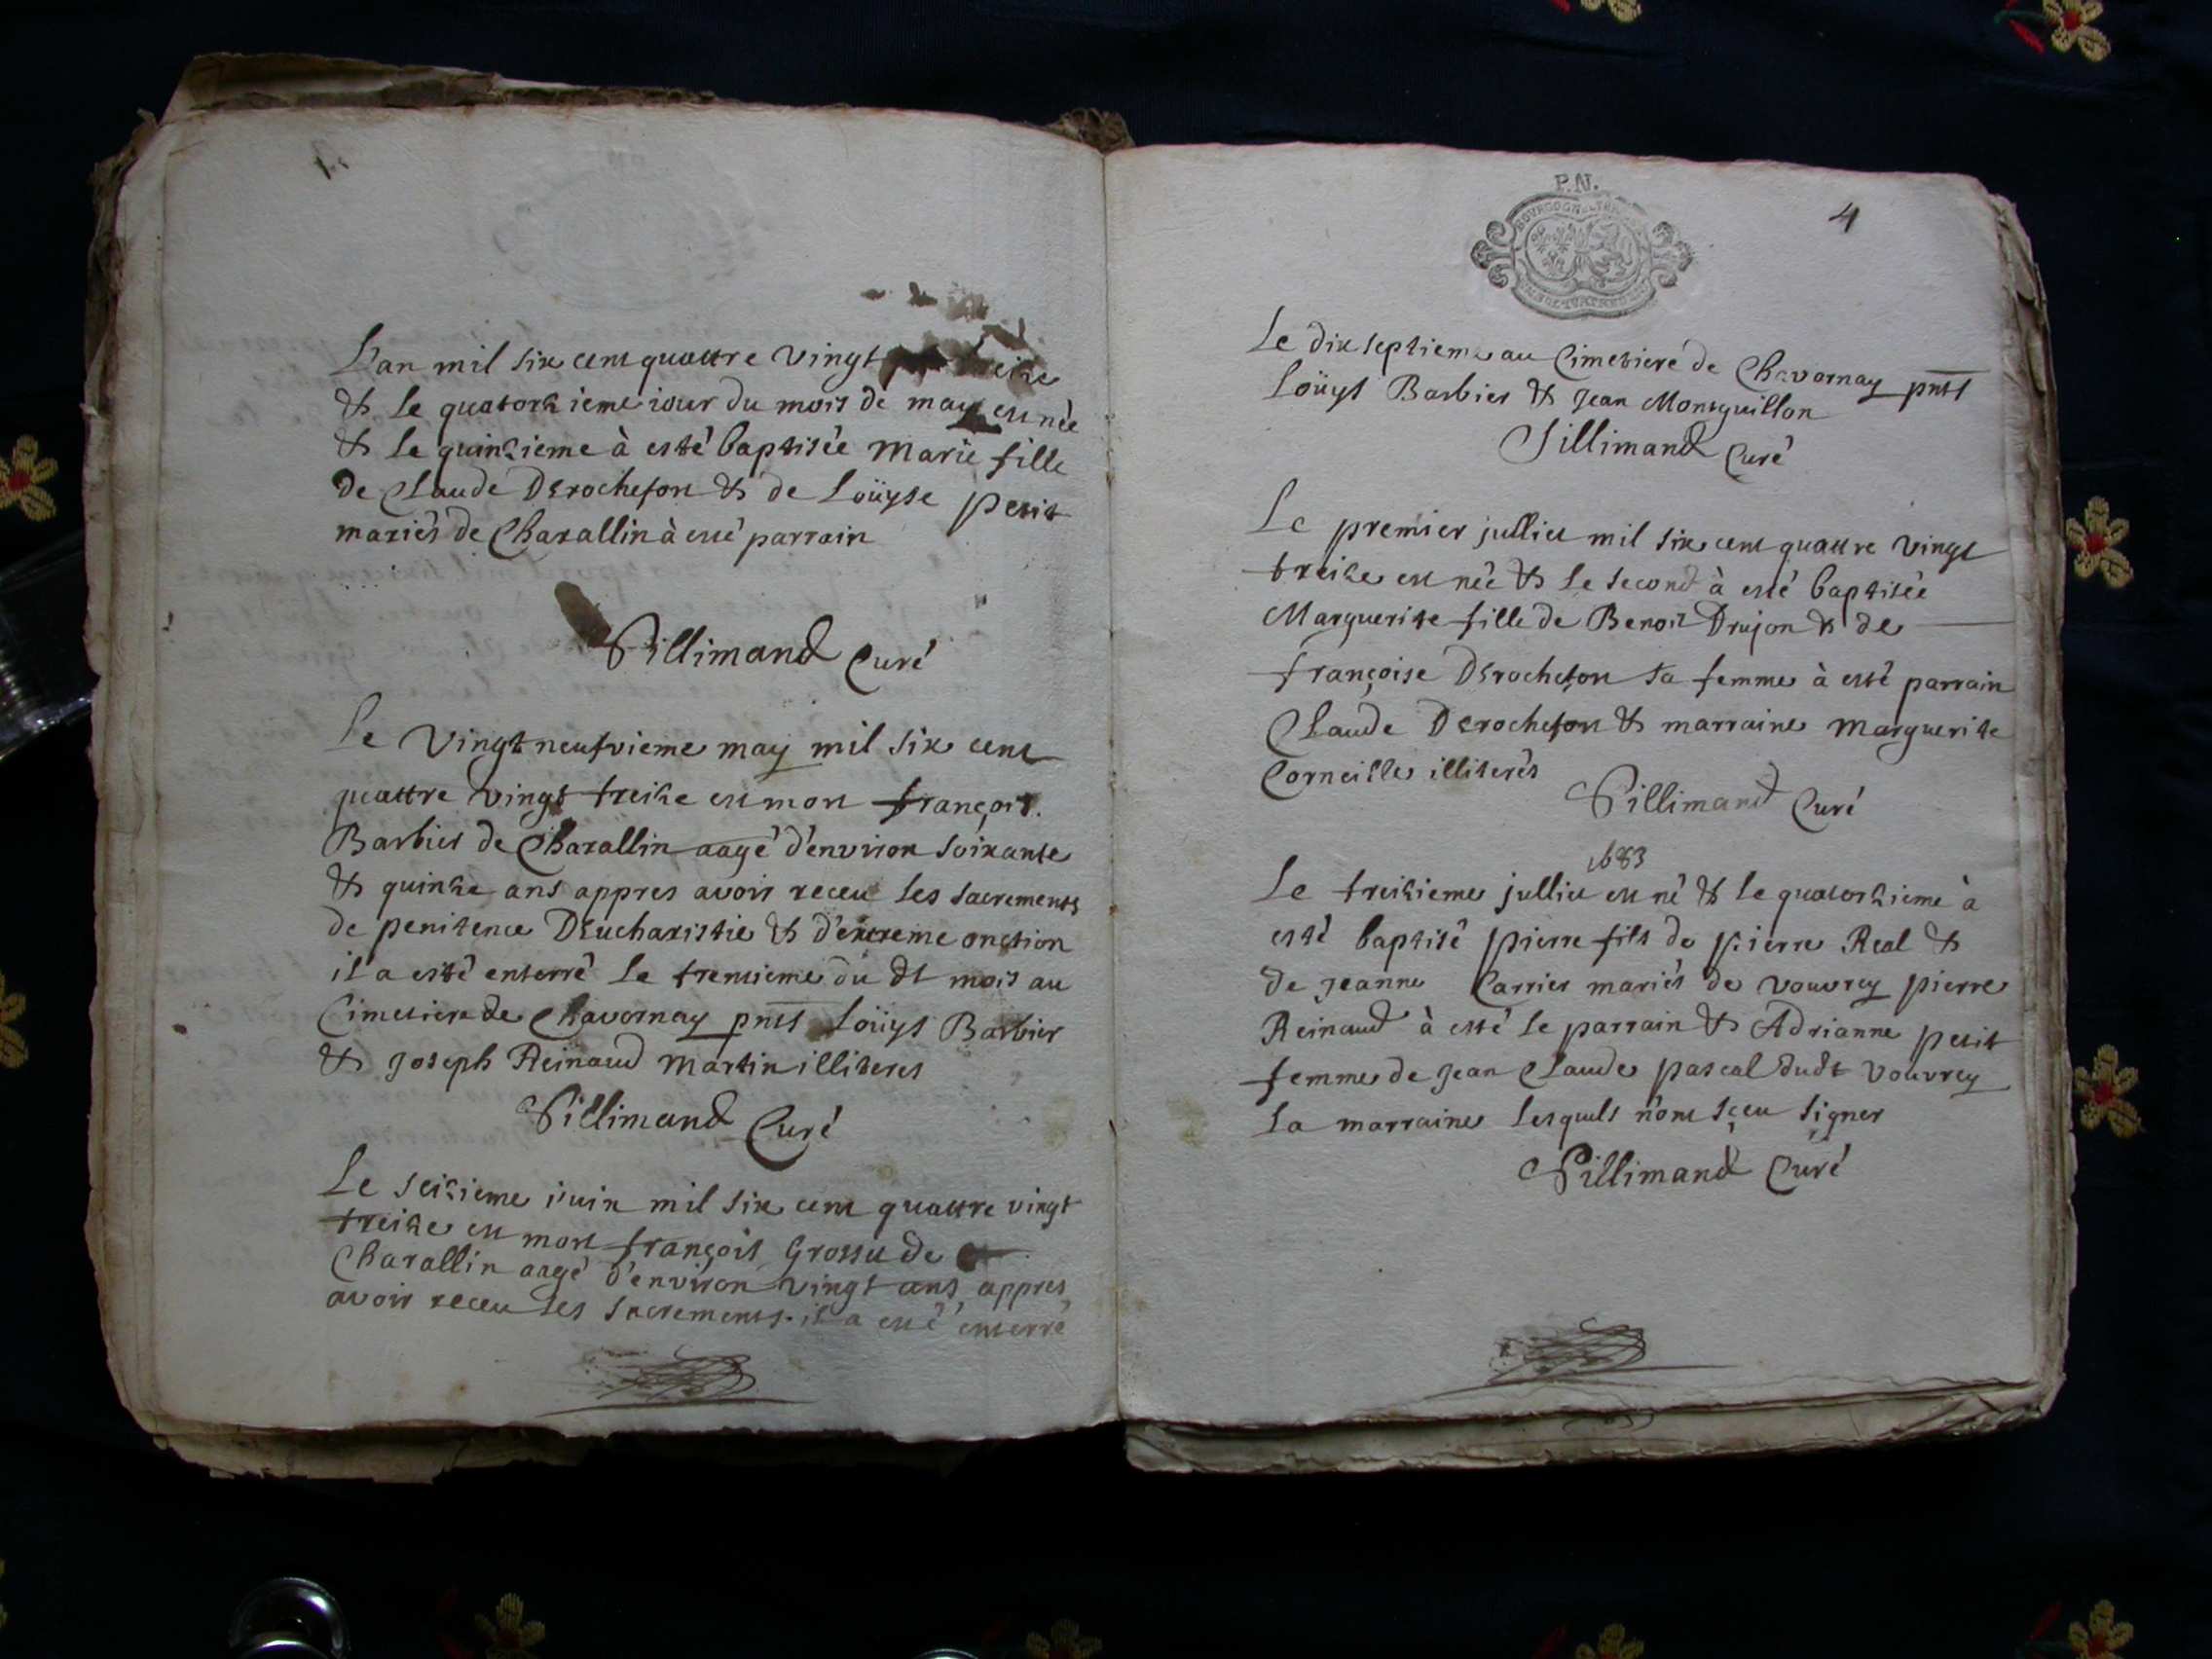 L'an mil six cent quattre vingt treize
& le quatorzieme iour du mois de may est née
& le quinzieme à esté baptisée Marie fille
de Claude Derochefort & de Loüyse Petit
mariés de Charallin à esté parrain
Pillimand Curé
Le vingt neufvieme may mil six cent
quattre vingt treize est mort françois
Barbier de Charallin aagé d'environ soixante
& quinze ans appres avoir receu les sacrements
de penitence D'eucharistie & d'extreme onction
il a esté enterré le trentieme du dt mois au
Cimetiere de Chavornay pnts Loüys Barbier
& Joseph Reinaud Martin illiteres
Pillimand Curé
Le seizieme iuin mil six cent quattre vingt
treize est mort françois Grosset de
Charallin aagé d'environ vingt ans appres
avoir receu les sacrements. il a esté enterré
P.N.
4
Le dix septieme au Cimetiere de Chavornay pnts
Loüys Barbier & Jean Montguillon
Pillimand Curé
Le premier julliet mil six cent quattre vingt
treize est née & le second à esté baptisée
Marguerite fille de Benoit Drujon & de
françoise Derochefort sa femme à esté parrain
Claude Derochefort & marraine Marguerite
Corneille illiterés
Pillimand Curé
1683
Le treizieme julliet est né & le quatorzieme à
esté baptisé pierre fils de pierre Real &
de Jeanne Carrier mariés de vouvrey pierre
Reinaud à esté le parrain & Adrianne petit
femme de Jean Claude pascal dudt vouvrey
la marraine lesquels n'ont sçeu signer
Pillimand Curé